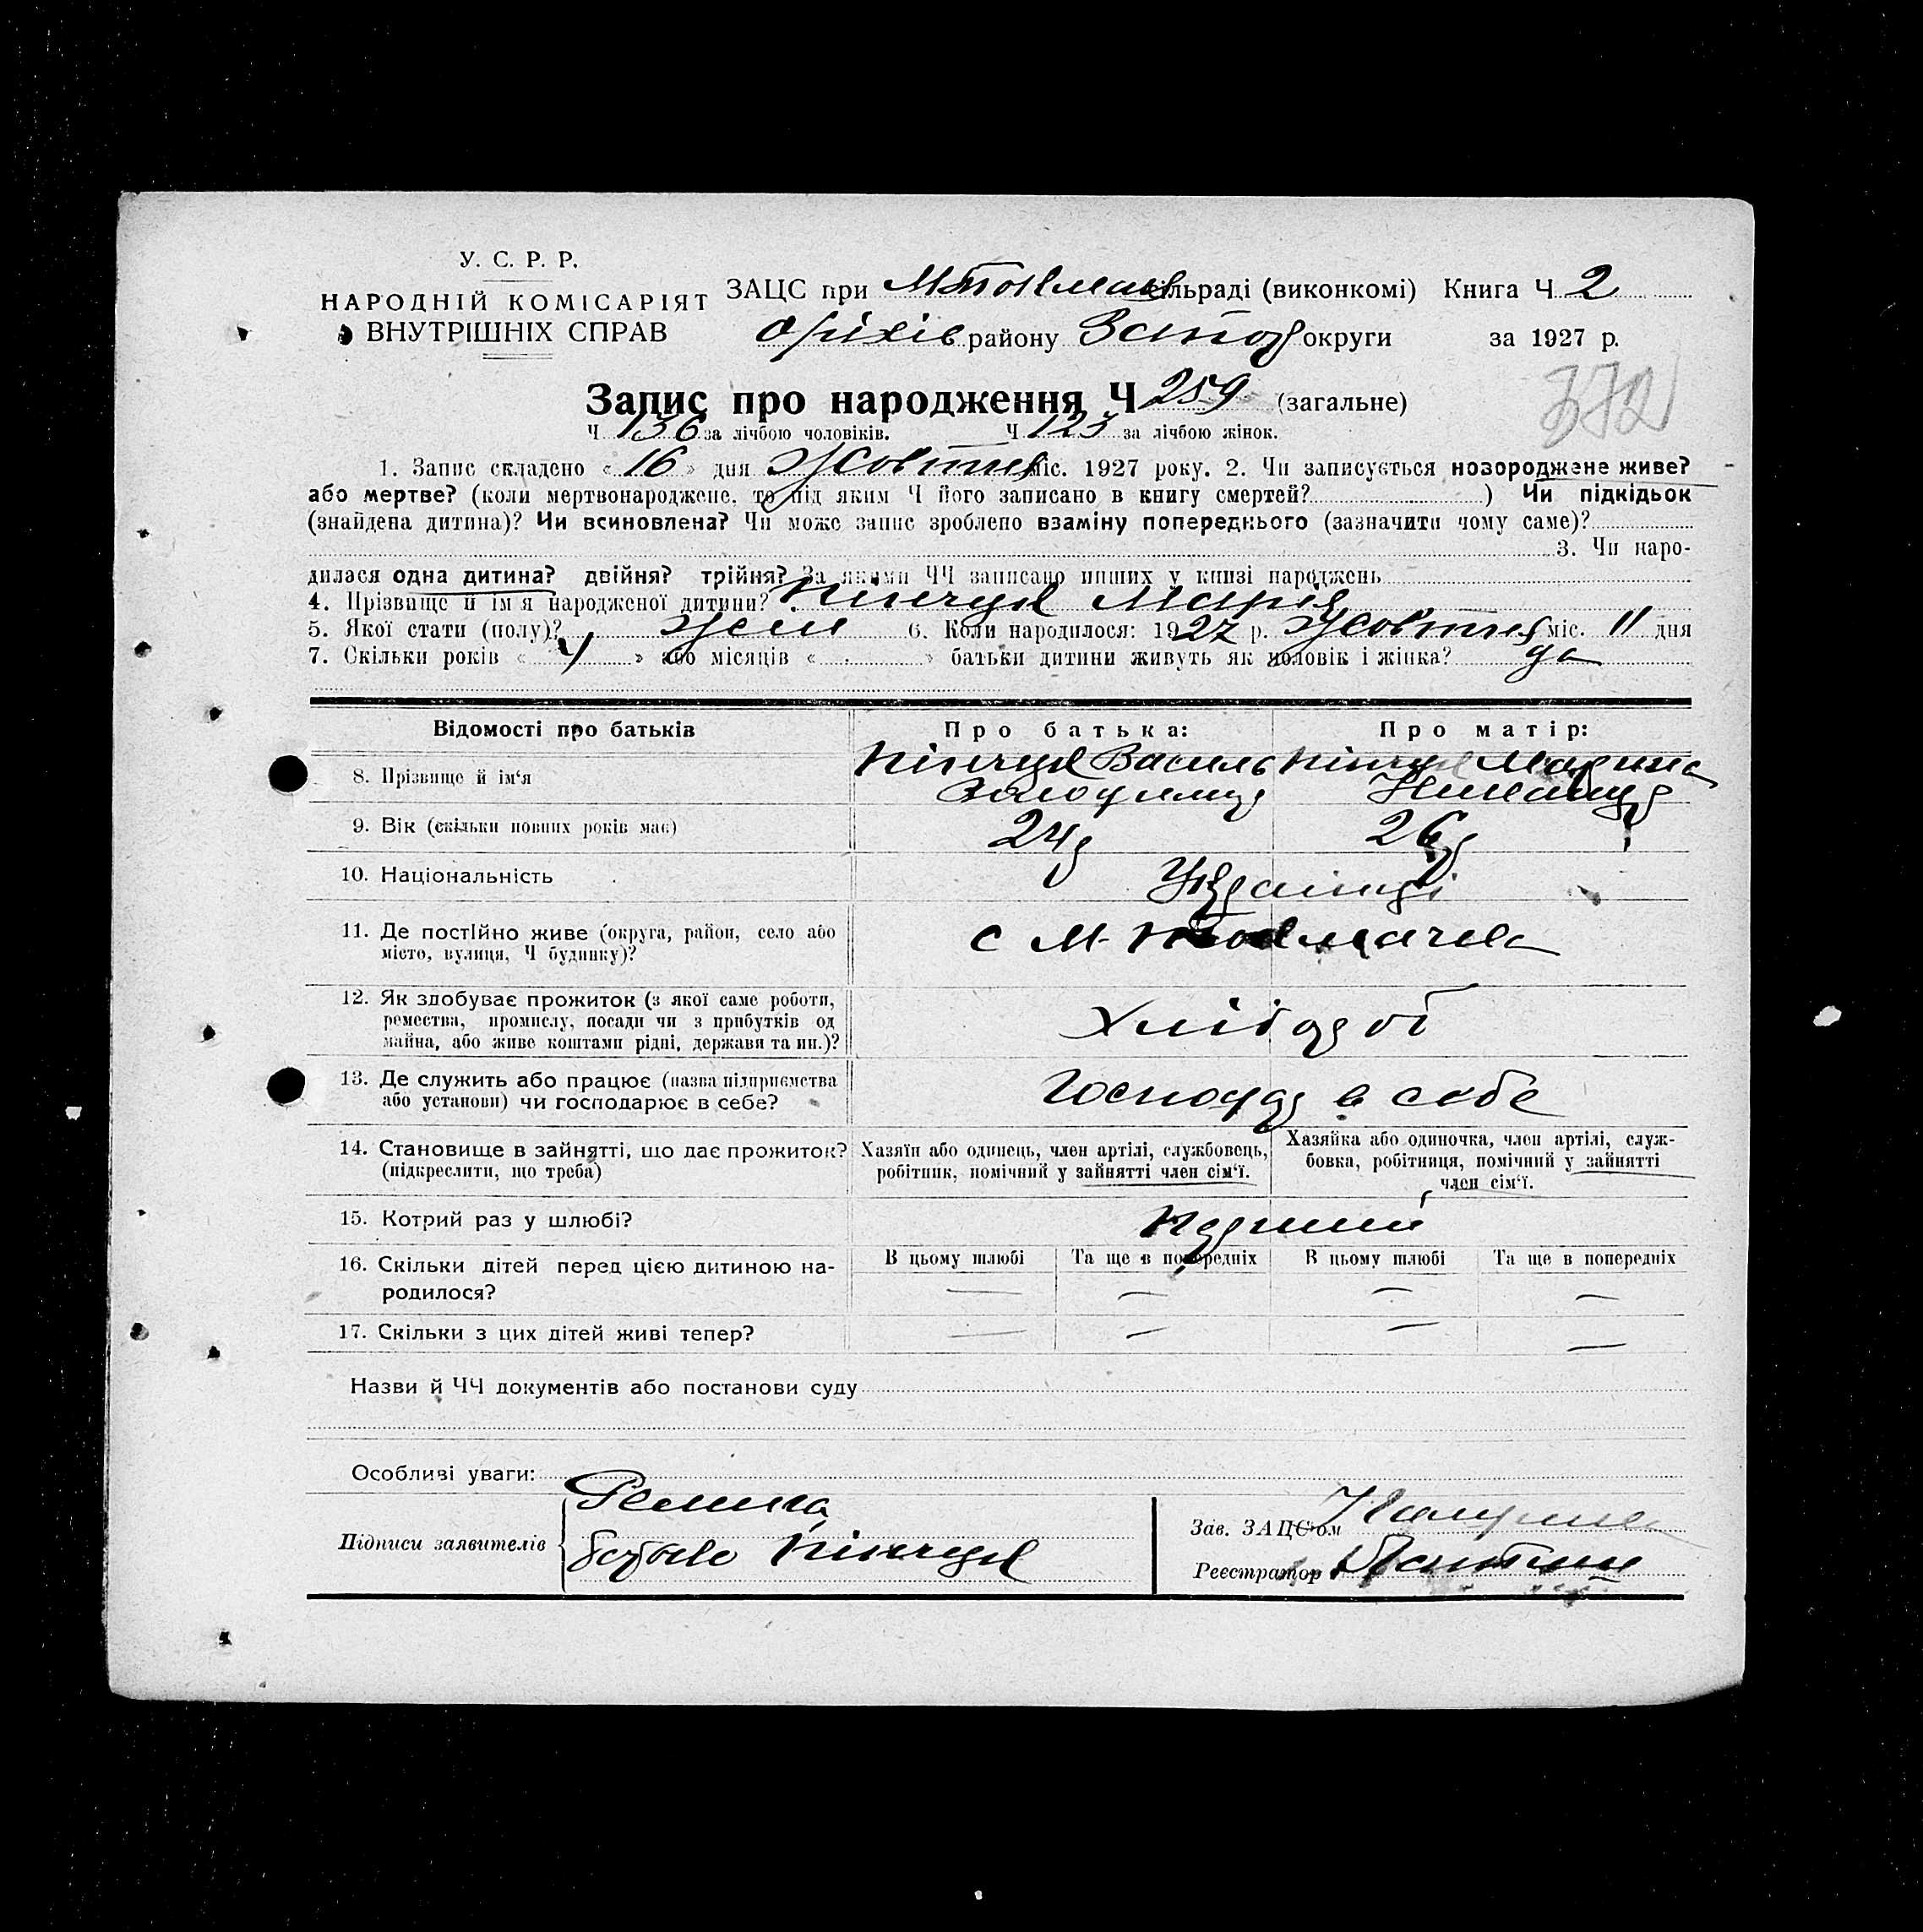 У. С. Р. Р.
НАРОДНІЙ КОМІСАРІЯТ
ВНУТРІШНІХ СПРАВ
ЗАЦС при М Токмац сільраді (виконкомі) Книга Ч 2
Оріхів району Запор округи за 1927 р.
Запис про народження Ч 259 (загальне)
372
Ч 136 за лічбою чоловіків. Ч 123 за лічбою жінок.
1. Запис складено « 16 » дня Жовтня міс. 1927 року. 2. Чи записується новороджене живе?
або мертве? (коли мертвонароджене, то під яким Ч його записано в книгу смертей? ) Чи підкідьок
(знайдена дитина)? Чи всиновлена? Чи може запис зроблено взаміну попереднього (зазначити чому саме)?
3. Чи наро-
дилася одна дитина? двійня? трійня? За якими ЧЧ записано инших у книзі народжень
4. Прізвище й ім'я народженої дитини? Пінчук Марія
5. Якої стати (полу)? жен 6. Коли народилося: 1927 р. Жовтня міс. 11 дня
7. Скільки років « » або місяців « » батьки дитини живуть як чоловік і жінка? да
Відомості про батьків Про батька: Про матір:
8. Прізвище й ім'я Пінчук Василь Пінчук Марина
9. Вік (скільки повних років має) 24 р 26 р
10. Національність Українці
11. Де постійно живе (округа, район, село або
місто, вулиця, Ч будинку)? с М-Токмачка
12. Як здобуває прожиток (з якої саме роботи,
ремества, промислу, посади чи з прибутків од
майна, або живе коштами рідні, держави та ин.)? Хлібороб
13. Де служить або працює (назва підприємства
або установи) чи господарює в себе? Господар в себе
14. Становище в зайнятті, що дає прожиток?
(підкреслити, що треба)
Хазяїн або одинець, член артілі, службовець,
робітник, помічний у зайнятті член сім'ї.
Хазяйка або одиночка, член артілі, служ-
бовка, робітниця, помічний у зайнятті
член сім'ї.
15. Котрий раз у шлюбі? Перший
16. Скільки дітей перед цією дитиною на-
родилося?
В цьому шлюбі Та ще в попередніх В цьому шлюбі Та ще в попередніх
— — — —
17. Скільки з цих дітей живі тепер? — — — —
Назви й ЧЧ документів або постанови суду
Особливі уваги:
Підписи заявителів
Пінчук
Зав. ЗАЦС'ом
Реєстратор